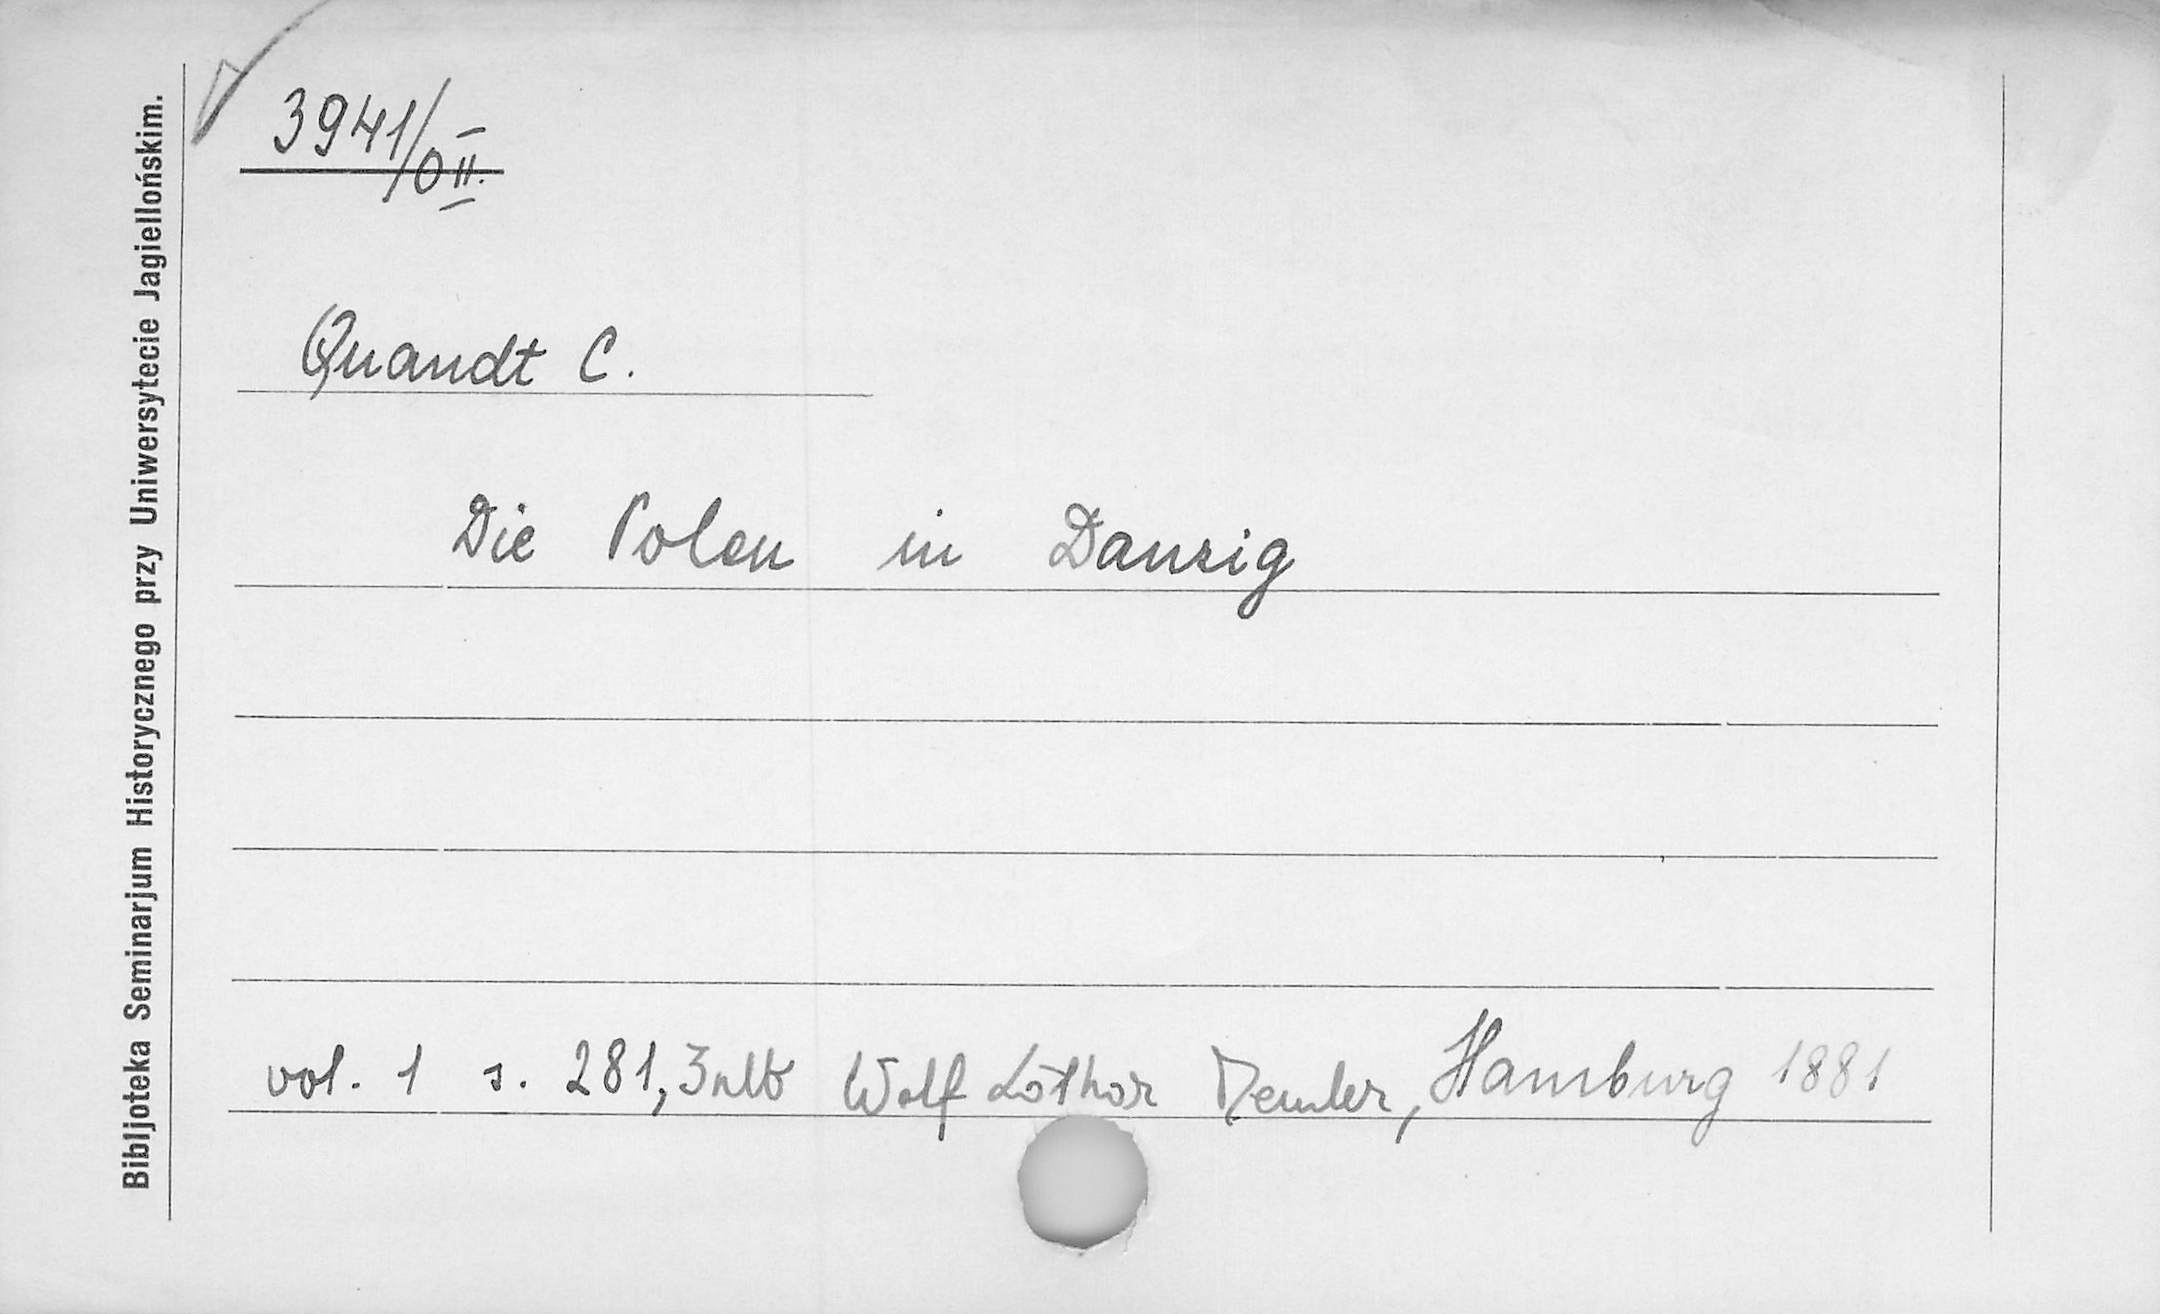 3941/0 II.
Quandt C.
Die Polen in Danzig
vol. 1 s. 281, 3nlb Wolf Lothar, Hamburg 1881
Bibljoteka Seminarjum Historycznego przy Uniwersytecie Jagiellońskim.